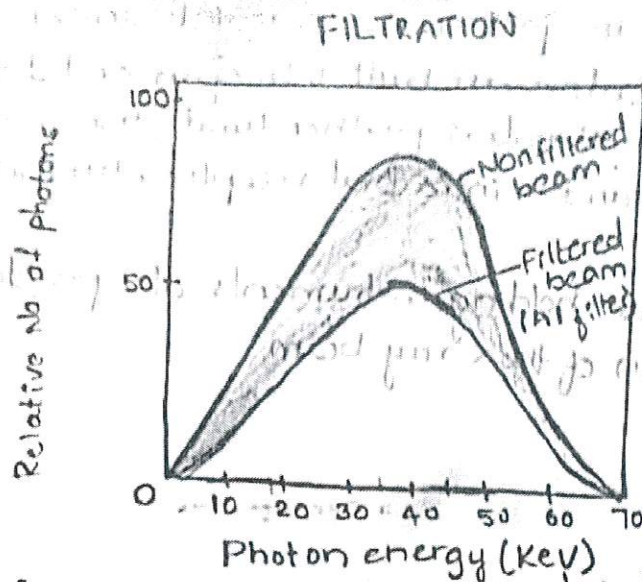 FILTRATION
100
50
0
Relative No of photons
Nonfiltered
beam
Filtered
beam
filter)
10 20 30 40 50 60 70
Photon energy (KeV)